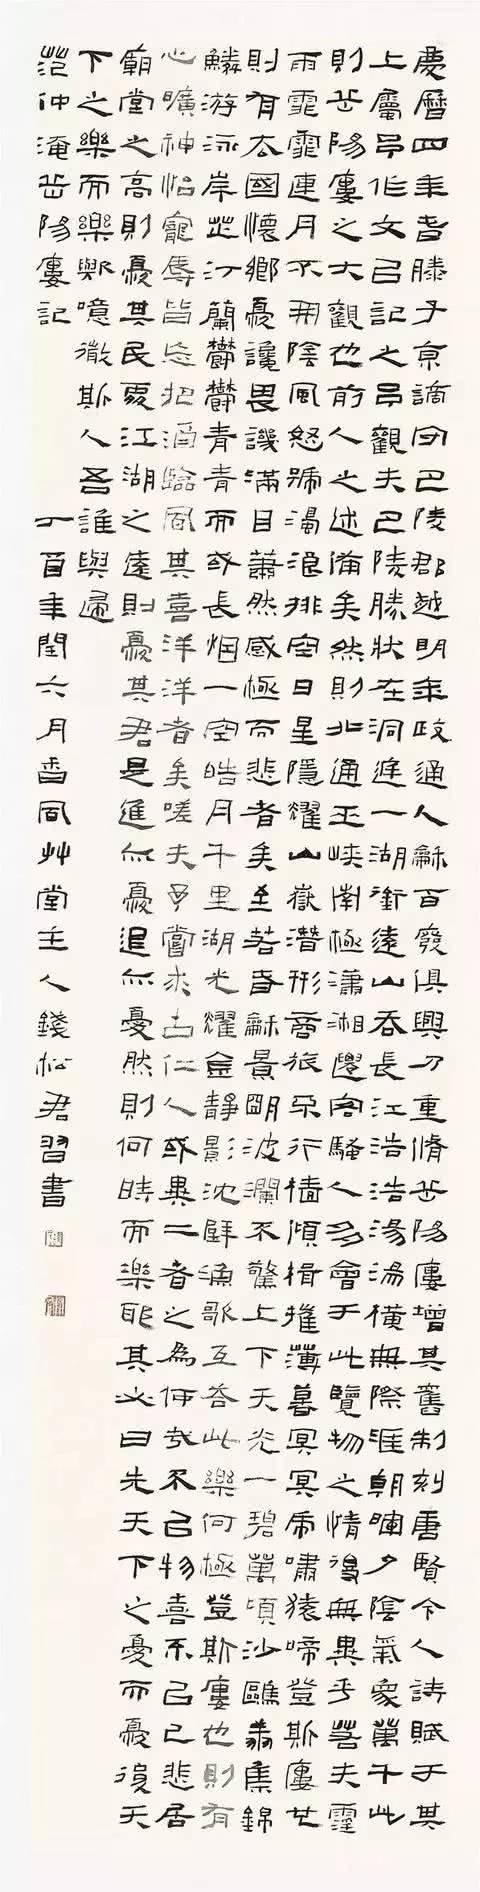 慶曆四年春滕子京謫守巴陵郡越明年政通人龢百廢俱興乃重脩岳陽廔增其舊制刻唐賢今人詩賦于其
上屬予作文以記之予觀夫巴陵勝狀在洞庭一湖銜遠山吞長江浩浩湯湯橫無際涯朝暉夕陰氣象萬千此
則岳陽廔之大觀也前人之述備矣然則北通巫峽南極瀟湘遷客騷人多會于此覽物之情得無異乎若夫霪
雨霏霏連月不開陰風怒號濁浪排空日星隱耀山嶽潛形商旅不行檣傾楫摧薄暮冥冥虎嘯猿啼登斯廔也
則有去國懷鄉憂讒畏譏滿目蕭然感極而悲者矣至若春龢景明波瀾不驚上下天光一碧萬頃沙鷗翔集錦
鱗游泳岸芷汀蘭鬱鬱青青而或長烟一空皓月千里湖光耀金靜影沈璧漁歌互答此樂何極登斯廔也則有
心曠神怡寵辱皆忘把酒臨風其喜洋洋者矣嗟夫予嘗求古仁人或異二者之為何哉不以物喜不以己悲居
廟堂之高則憂其民處江湖之遠則憂其君是進亦憂退亦憂然則何時而樂耶其必曰先天下之憂而憂後天
下之樂而樂歟噫微斯人吾誰與歸
范仲淹岳陽廔記 丁酉年閏六月香風艸堂主人錢松君習書